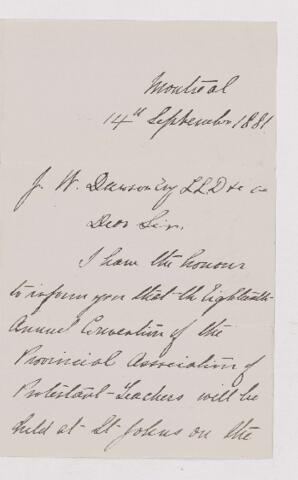 Montreal
14th September 1881
J. W. Dawson Esq LLD &c
Dear Sir,
I have the honour
to inform you that the Eighteenth
Annual Convention of the
Provincial Association of
Protestant Teachers will be
held at St Johns on the